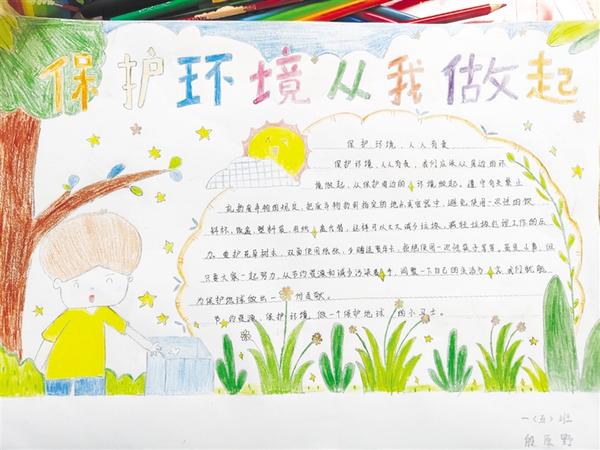 保护环境从我做起
保护环境，人人有责
保护环境，人人有责，我们应该从身边的环
境做起，从保护周边的环境做起。遵守有关禁止
乱扔废弃物的规定，把废弃物扔到指定的地点或容器中，避免使用一次性的饮
料杯、饭盒、塑料袋，用纸盒代替，这样可以大大减少垃圾，减轻垃圾处理工作的压
力。爱护花草树木，双面使用纸张，少赠送贺年卡，拒绝使用一次性筷子等等。虽是小事，但
只要大家一起努力，从节约资源和减少污染着手，调整一下自己的生活方式，我们就能
为保护地球做出一份贡献。
节约资源，保护环境，做一个保护地球的小卫士。
一（五）班
殷辰野